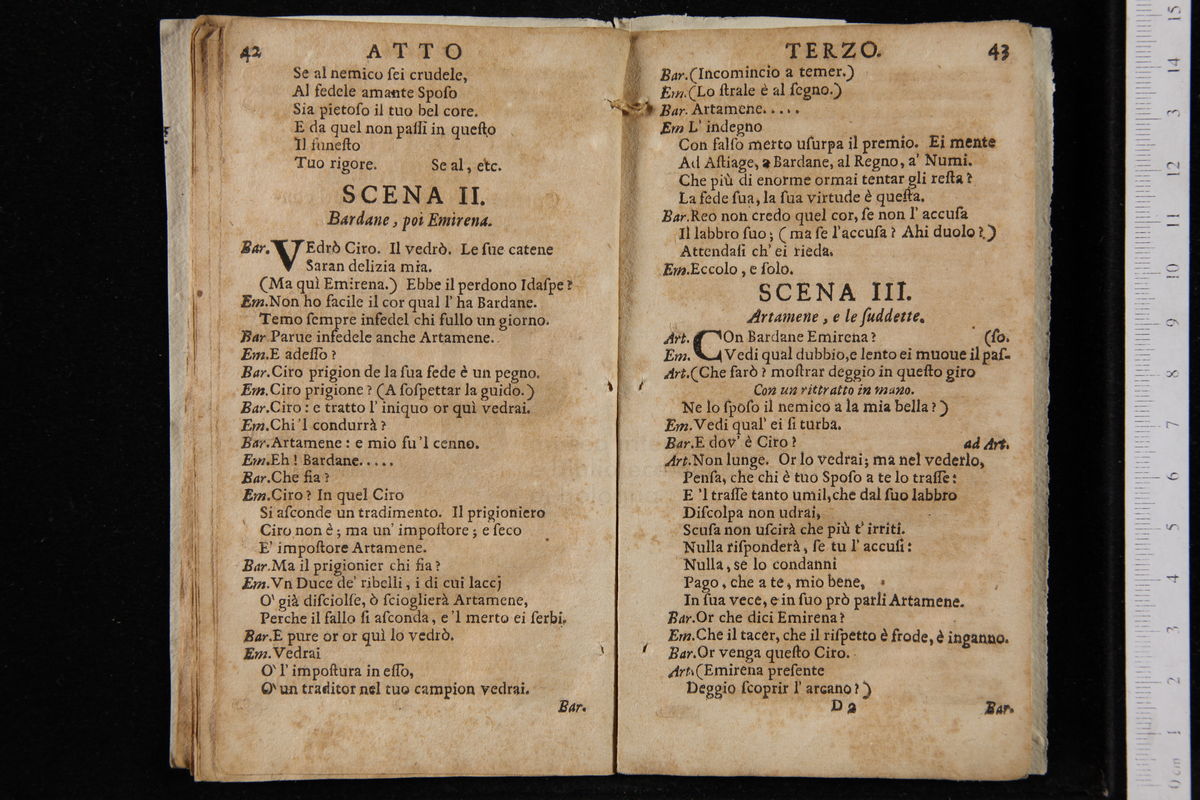 42 ATTO
Se al nemico ſei crudele,
Al fedele amante Spoſo
Sia pietoſo il tuo bel core.
E da quel non paſſi in queſto
Il funeſto
Tuo rigore. Se al, etc.
SCENA II.
Bardane, poi Emirena.
Bar. VEdrò Ciro. Il vedrò. Le ſue catene
Saran delizia mia.
(Ma quì Emirena.) Ebbe il perdono Idaſpe?
Em. Non ho facile il cor qual l' ha Bardane.
Temo ſempre infedel chi fullo un giorno.
Bar Parue infedele anche Artamene.
Em. E adeſſo?
Bar. Ciro prigion de la ſua fede è un pegno.
Em. Ciro prigione? (A ſoſpettar la guido.)
Bar. Ciro: e tratto l' iniquo or quì vedrai.
Em. Chi 'l condurrà?
Bar. Artamene: e mio fu 'l cenno.
Em. Eh! Bardane.....
Bar. Che fia?
Em. Ciro? In quel Ciro
Si aſconde un tradimento. Il prigioniero
Ciro non è; ma un' impoſtore; e ſeco
E' impoſtore Artamene.
Bar. Ma il prigionier chi fia?
Em. Vn Duce de' ribelli, i di cui laccj
O' già diſciolſe, ò ſcioglierà Artamene,
Perche il fallo ſi aſconda, e 'l merto ei ſerbi.
Bar. E pure or or quì lo vedrò.
Em. Vedrai
O' l' impoſtura in eſſo,
O' un traditor nel tuo campion vedrai.
Bar.
TERZO. 43
Bar. (Incomincio a temer.)
Em. (Lo ſtrale è al ſegno.)
Bar. Artamene.....
Em L' indegno
Con falſo merto uſurpa il premio. Ei mente
Ad Aſtiage, a Bardane, al Regno, a' Numi.
Che più di enorme ormai tentar gli reſta?
La fede ſua, la ſua virtude è queſta.
Bar. Reo non credo quel cor, ſe non l' accuſa
Il labbro ſuo; (ma ſe l'accuſa? Ahi duolo?)
Attendaſi ch' ei rieda.
Em. Eccolo, e ſolo.
SCENA III.
Artamene, e le ſuddette.
Art. COn Bardane Emirena? (ſo.
Em. Vedi qual dubbio, e lento ei muoue il paſ-
Art. (Che farò? moſtrar deggio in queſto giro
Con un rittratto in mano.
Ne lo ſpoſo il nemico a la mia bella?)
Em. Vedi qual' ei ſi turba.
Bar. E dov' è Ciro? ad Art.
Art. Non lunge. Or lo vedrai; ma nel vederlo,
Penſa, che chi è tuo Spoſo a te lo traſſe:
E 'l traſſe tanto umil, che dal ſuo labbro
Diſcolpa non udrai,
Scuſa non uſcirà che più t' irriti.
Nulla riſponderà, ſe tu l' accuſi:
Nulla, se lo condanni
Pago, che a te, mio bene,
In ſua vece, e in ſuo prò parli Artamene.
Bar. Or che dici Emirena?
Em. Che il tacer, che il riſpetto è frode, è inganno.
Bar. Or venga queſto Ciro.
Art. (Emirena preſente
Deggio ſcoprir l' arcano?)
D 2 Bar.
0 cm 1 2 3 4 5 6 7 8 9 10 11 12 3 14 15